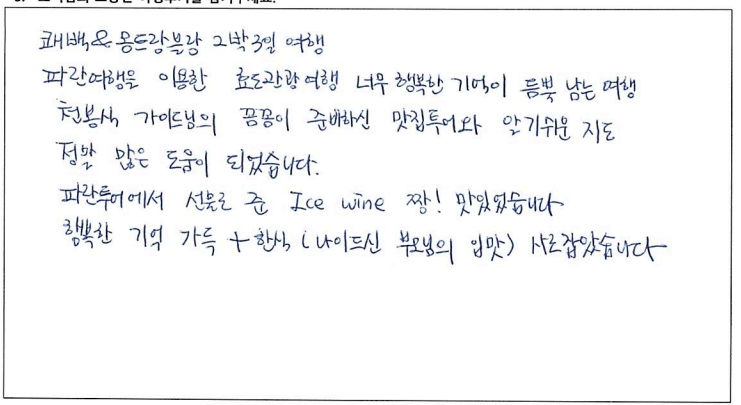 쾌백&몽드랑블랑 2박3일 여행
파란여행을 이용한 효도관광여행 너무 행복한 기억이 듬뿍 남는 여행
천봉식 가이드님의 꼼꼼이 준비하신 맛집투어와 알기쉬운 지도
정말 많은 도움이 되었습니다.
파란투어에서 선물로 준 Ice wine 짱! 맛있었습니다
행복한 기억 가득 + 한식 (나이드신 부모님의 입맛) 사로잡았습니다